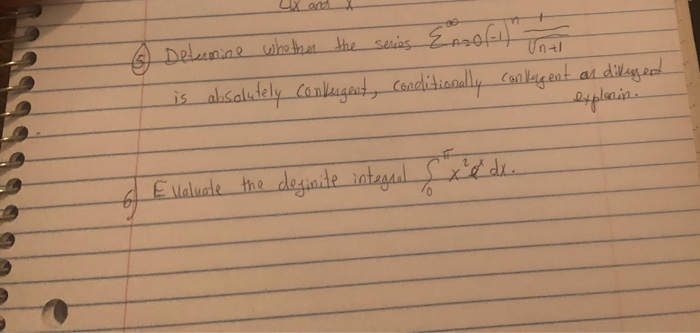 4x and x
⑤ Determine whether the series Σ^∞ n=0 (-1)^n 1/√n+1
is absolutely convergent, conditionally convergent or divergent
explanin.
6) Evaluate the definite integral ∫₀^π x² e^x dx.